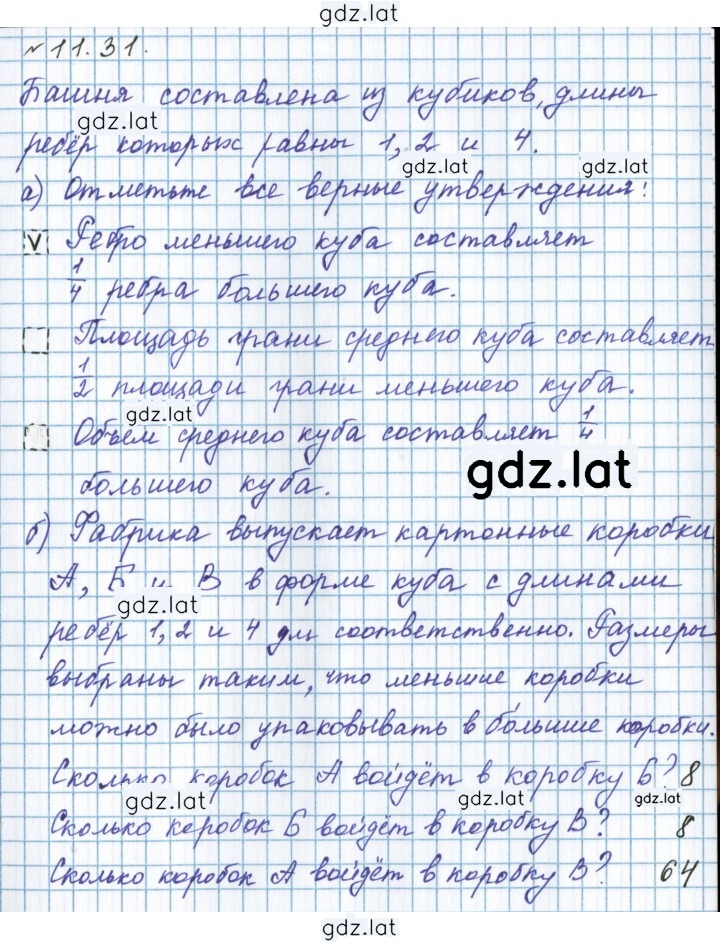 gdz.lat
№11.31.
Башня составлена из кубиков, длины
gdz.lat
рёбер которых равны 1, 2 и 4.
gdz.lat gdz.lat
а) Отметьте все верные утверждения:
V Ребро меньшего куба составляет
1/4 ребра большего куба.
Площадь грани среднего куба составляет
1/2 площади грани меньшего куба.
gdz.lat
Объём среднего куба составляет 1/4
gdz.lat
большего куба.
б) Фабрика выпускает картонные коробки
А, Б и В в форме куба с длинами
gdz.lat
рёбер 1, 2 и 4 дм соответственно. Размеры
выбраны таким, что меньшие коробки
можно было упаковывать в бо́льшие коробки.
Сколько коробок А войдёт в коробку Б? 8
gdz.lat gdz.lat gdz.lat
Сколько коробок Б войдёт в коробку В? 8
Сколько коробок А войдёт в коробку В? 64
gdz.lat